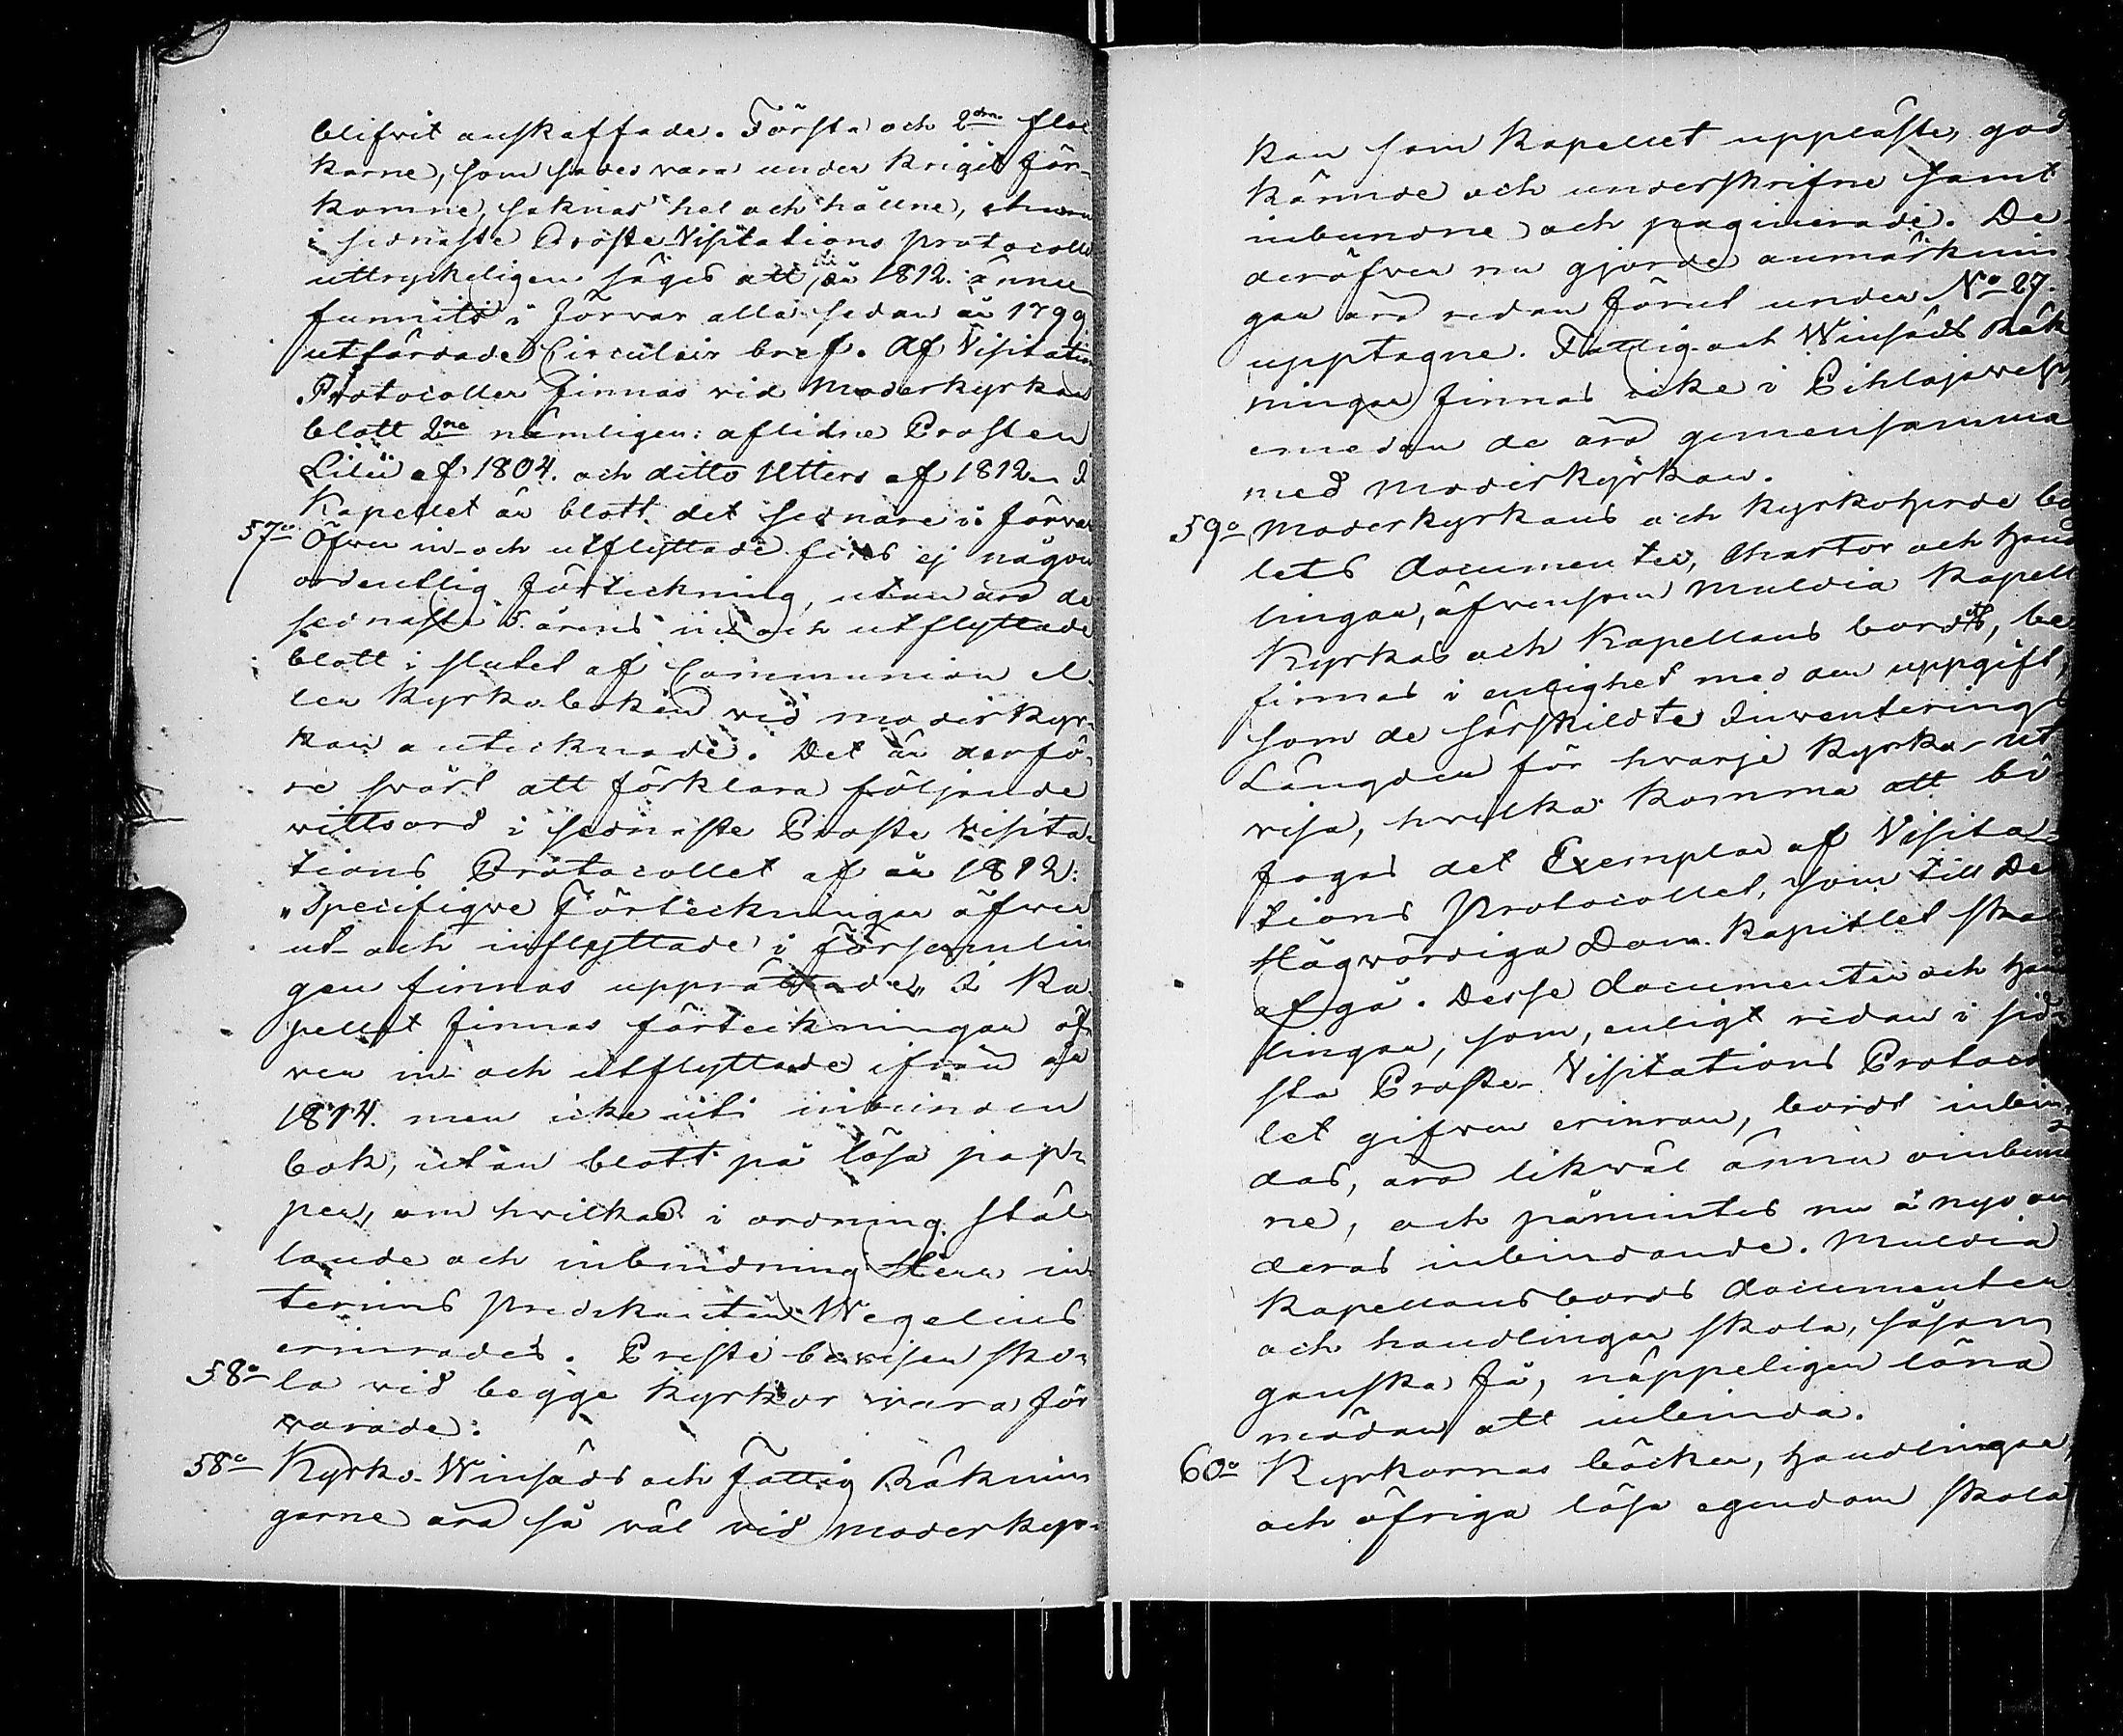 blifvit anskaffade. Första och 2dra floc
karne, som sades vara under kriget för-
komne, saknas hel och hållne, ehuru
i sednaste Proste Visitations protocolle
uttryckeligen säges att, år 1812. ännu
funnits i förvar alla sedan år 1799
utfärdade Circulair bref. Af Visitation
Protocoller finnas vid Moderkyrkan
blott 2ne nämligen: aflidne Prosten
Lilii af 1804. och ditto Utters af 1812. I
Kapellet är blott det sednare i förvar
57o Öfver in- och utflyttade fins ej någon
ordentlig förteckning, utan äro de
sednaste 5. årens in och utflyttade
blott i slutet af Communion el-
ler Kyrkoboken vid moderkyr-
kan antecknade. Det är derfö-
re svårt att förklara följande
vittsord i sednaste Proste Visita-
tions Protocollet af år 1812:
„Specifique Förteckningar öfver
ut- och inflyttade i församlin
gen finnas upprättade„ I Ka-
pellet finnas förteckningar öf-
ver in- och utflyttade ifrån år
1814. men icke uti inbunden
bok, utan blott på lösa pap-
per, om hvilkas i ordning stäl-
lande och inbindning Herr in-
terims Predikanten Wegelius
erinrades. Preste bevisen sko-
58o la vid begge kyrkor vara för
varade.
58o Kyrko- Winsäds och Fattig Räknin
garne äro så väl vid moderkyr-
kan som Kapellet uppläste, god
kännde och underskrifne samt
inbundne och paginerade. De
deröfver nu gjorde anmärknin
gar äro redan förut under No 27.
upptagne. Fattig- och Winsäds Räk
ningar finnas icke i Pihlajavesi,
emedan de äro gemensamma
med Moderkyrkan.
59o Moderkyrkans och Kyrkoherde bo
lets documenter, Chartor och Hand
lingar, äfvensom Muldia Kapell
Kyrkas och Kapellans bords, be-
finnas i enlighet med den uppgift,
som de särskildte Inventerings
Längden för hvarje kyrka ut
visa, hvilka komma att bi
fogas det Exemplar af Visita-
tions Protocollet, som till De
Högvördiga Dom-Kapitlet skal
afgå. Desse documenter och Han
lingar, som, enligt redan i sid-
sta Proste- Visitations Protocol
let gifven erinran, bordt inbin
das, äro likväl ännu oinbund
ne, och påmintes nu å nyo om
deras inbindande. Muldia
Kapellansbords documenter
och handlingar skola, såsom
ganska få, näppeligen löna
mödan att inbinda.
60o Kyrkornas böcker, Handlingar,
och öfriga lösa egendom skola